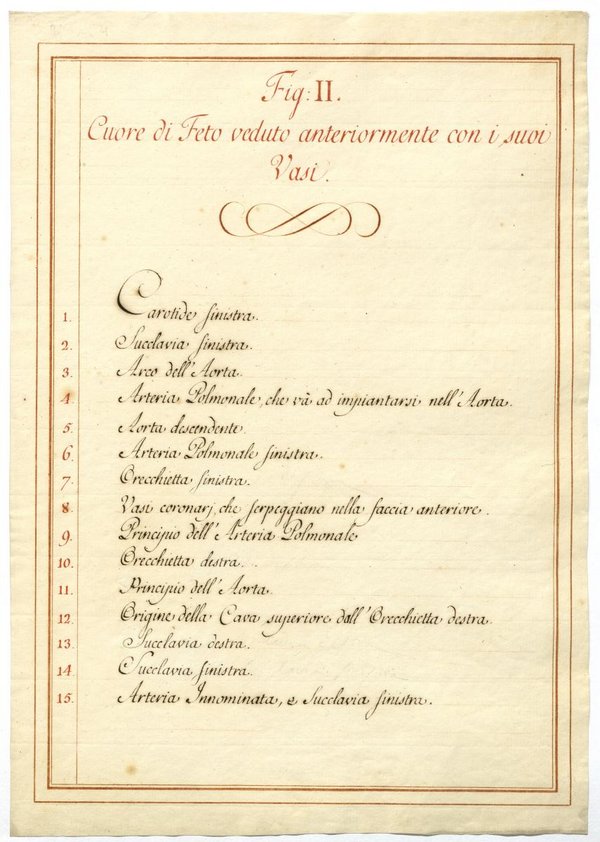 Fig: II.
Cuore di Feto veduto anteriormente con i suoi
Vasi.
1. Carotide sinistra.
2. Succlavia sinistra.
3. Arco dell'Aorta.
4. Arteria Polmonale, che và ad impiantarsi nell'Aorta.
5. Aorta descendente.
6. Arteria Polmonale sinistra.
7. Orecchietta sinistra.
8. Vasi coronarj, che serpeggiano nella faccia anteriore.
9. Principio dell'Arteria Polmonale
10. Orecchietta destra.
11. Principio dell'Aorta.
12. Origine della Cava superiore dall'Orecchietta destra.
13. Succlavia destra.
14. Succlavia sinistra.
15. Arteria Innominata, e Succlavia sinistra.